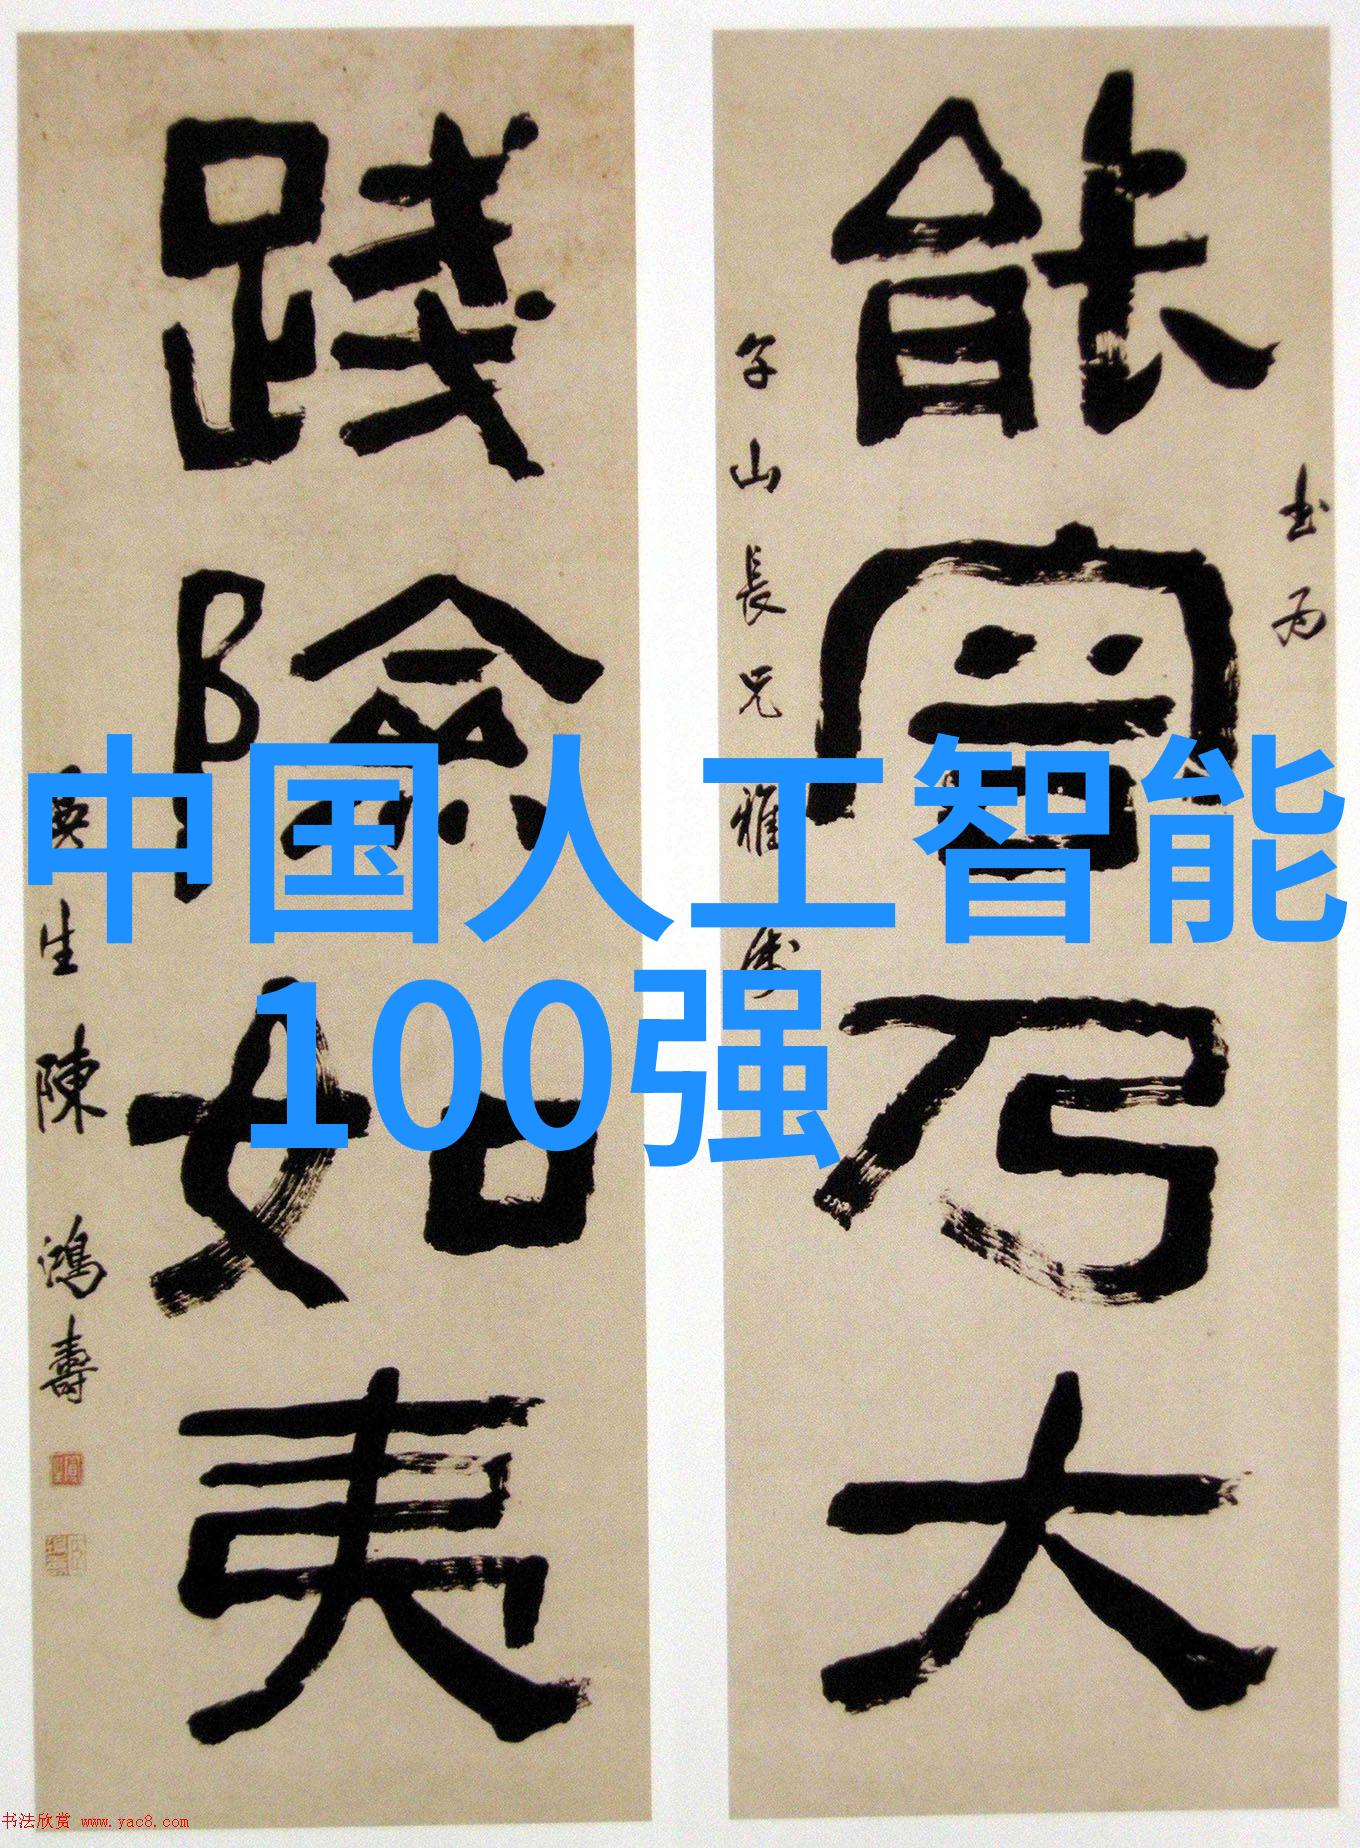 中国人工智能
100强
能容乃大
山長兄雅
踐險如夷
生陳鴻壽
书法欣赏 www.yac8.com